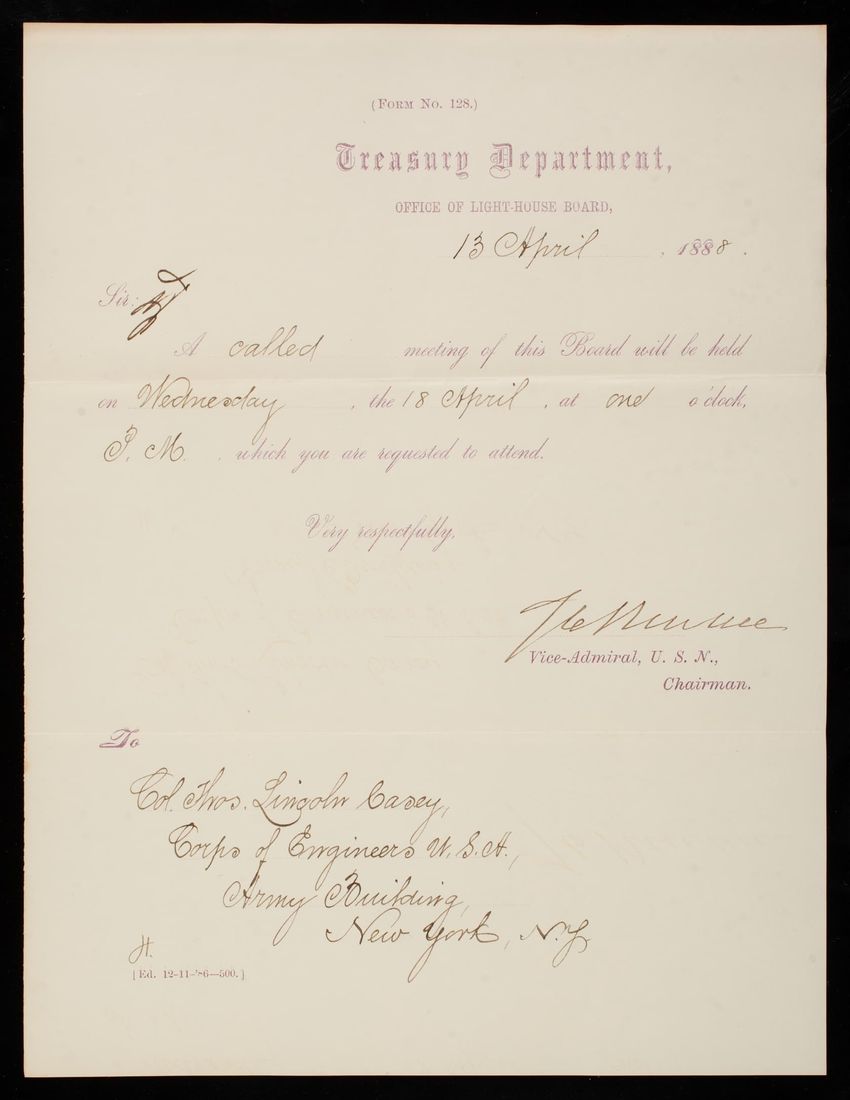 (FORM NO. 128.)
Treasury Department,
OFFICE OF LIGHT-HOUSE BOARD,
13 April , 1888 .
Sir:
A called meeting of this Board will be held
on Wednesday , the 18 April , at one o'clock,
P. M. , which you are requested to attend.
Very respectfully,
Vice-Admiral, U. S. N.,
Chairman.
To
Col. Thos. Lincoln Casey,
Corps of Engineers U.S.A.,
Army Building,
New York, N.Y.
H.
[Ed. 12-11-'86—500.]